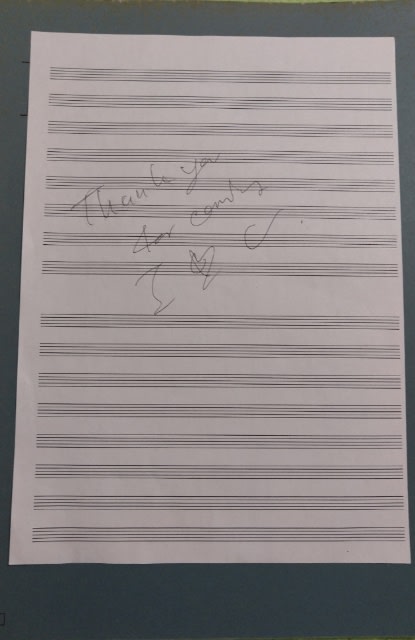 Thank you
for coming
I ♡ U.